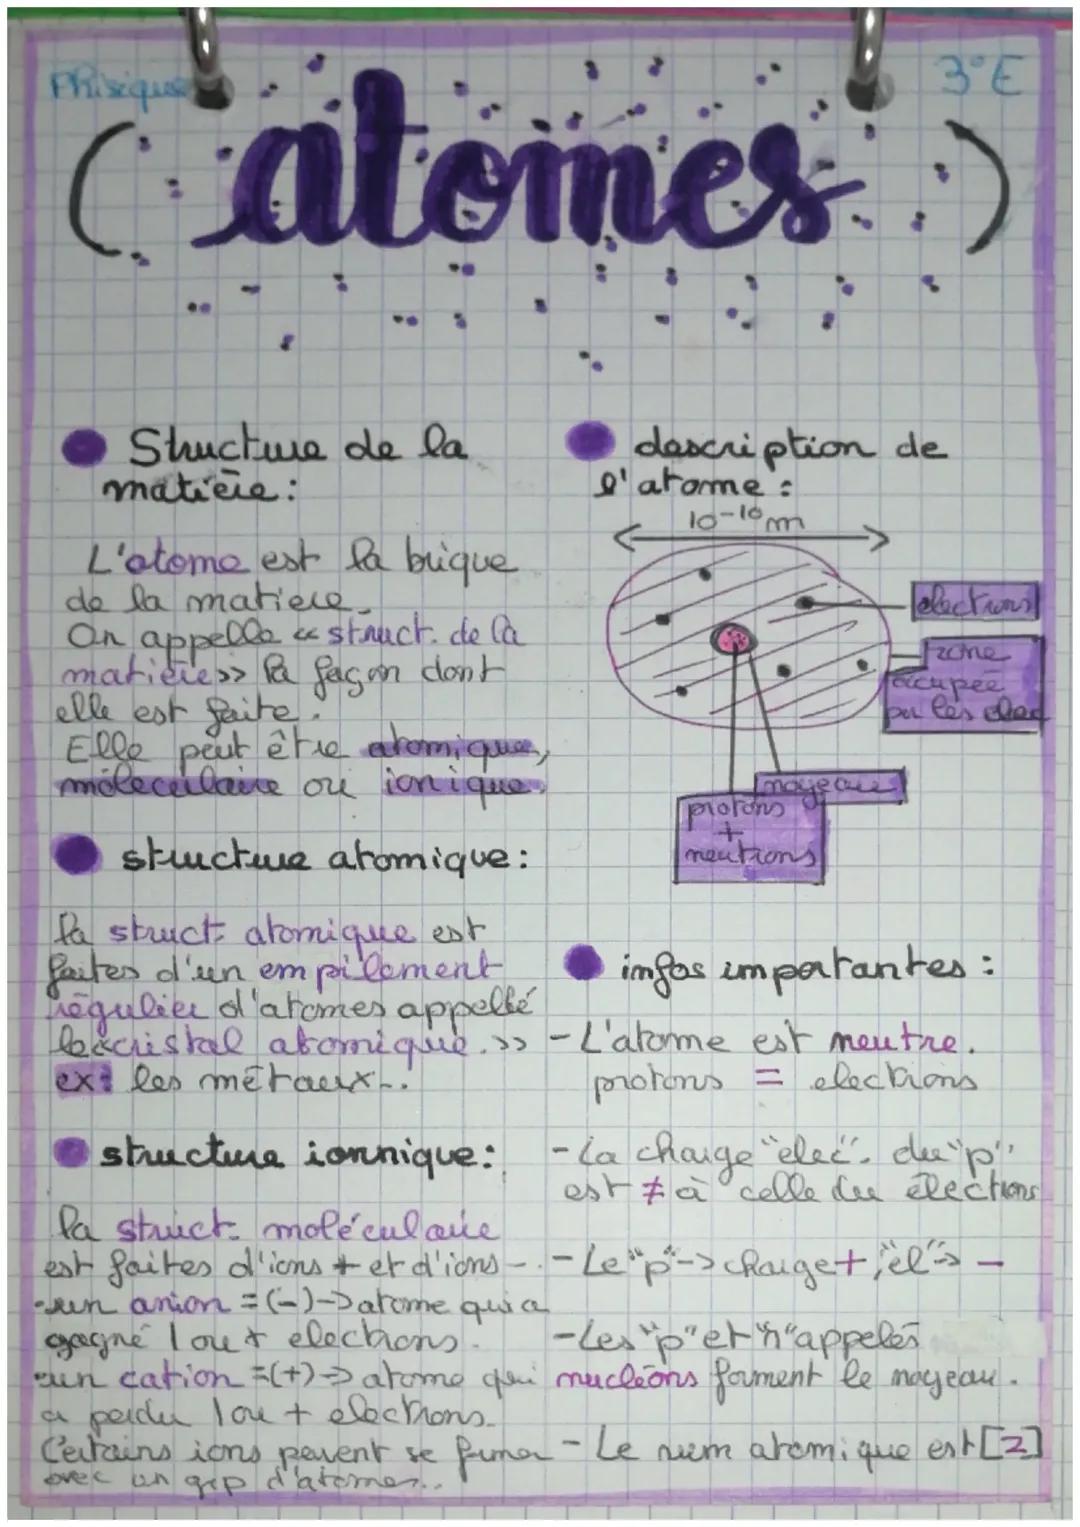 Phisique
3°E
( atomes )
Structure de la
matière :
L'atome est la brique
de la matiere.
On appelle « struct. de la
matière» la façon dont
elle est faite.
Elle peut être atomique,
moleculaire ou ionique.
structure atomique :
la struct. atomique est
faites d'un empilement
régulier d'atomes appellé
le «cristal atomique.»
ex: les métaux...
structure ionnique :
la struct. moléculaire
est faites d'ions + et d'ions -.
-un anion = (-) -> atome qui a
gagné 1 ou + electrons.
-un cation =(+)-> atome qui
a perdu 1 ou + electrons.
Certains ions peuvent se
avec un grp d'atomes..
description de
l'atome :
10-10 m
electrons
zone
occupée
par les elec
noyeau
protons
+
neutrons
infos importantes :
- L'atome est neutre.
protons = electrons
- La charge "elec". du "p"
est ≠ à celle du électrons
- Le "p" -> charge +, "el" -> -
- Les "p" et "n" appelés
nucléons forment le noyeau.
- Le num atomique est [Z]